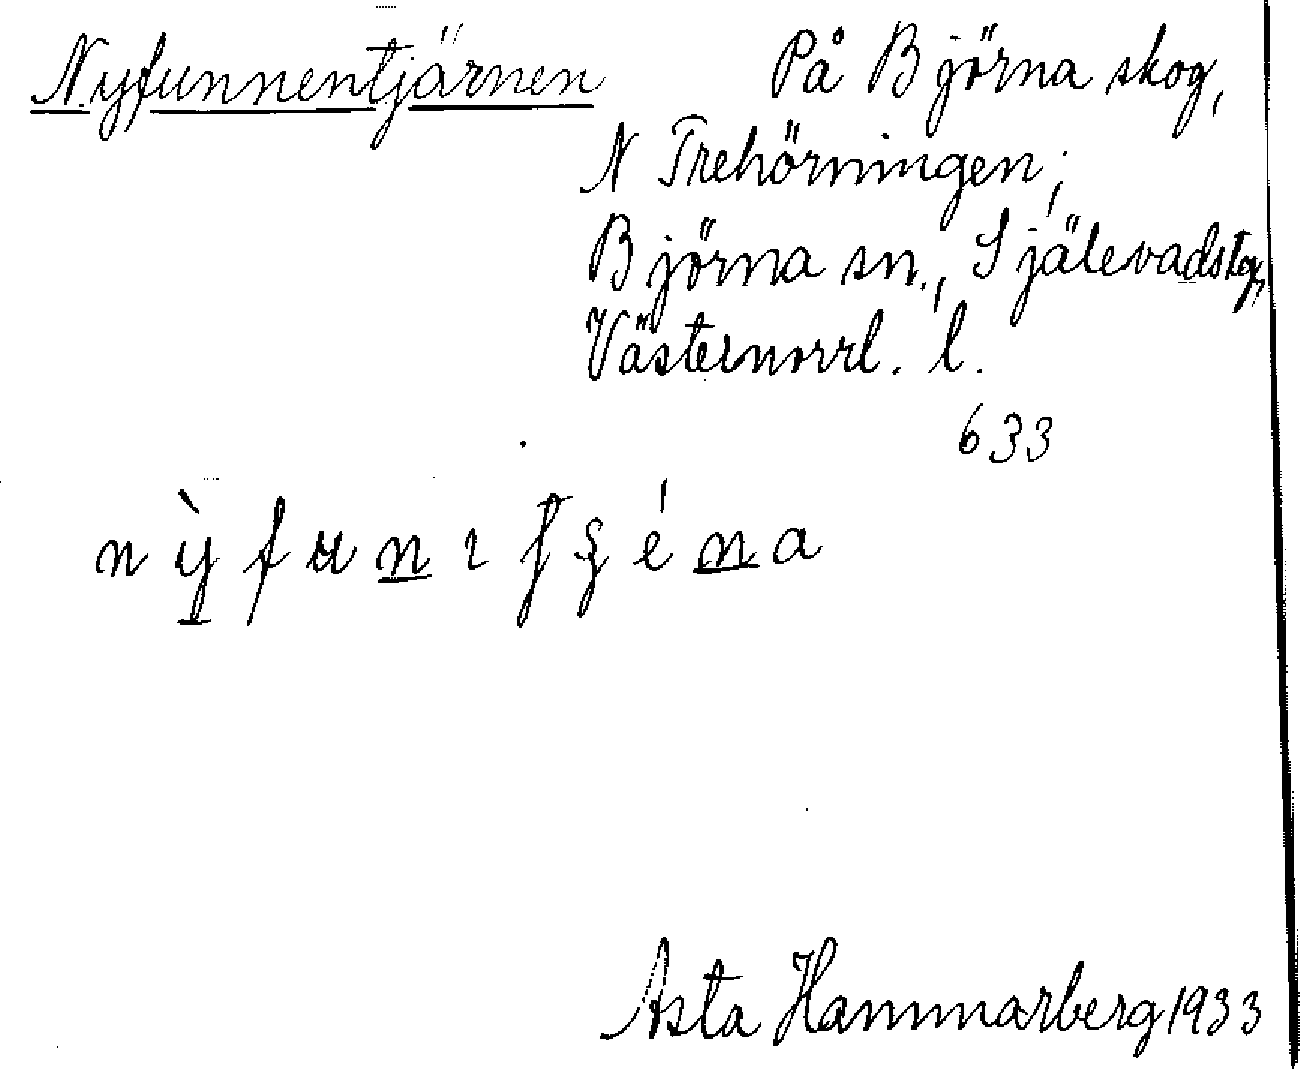 Nyfunnentjärnen På Björna skog,
N Trehörningen,
Björna sn., Själevadstg,
Västernorrl. l.
633
Asta Hammarberg 1933